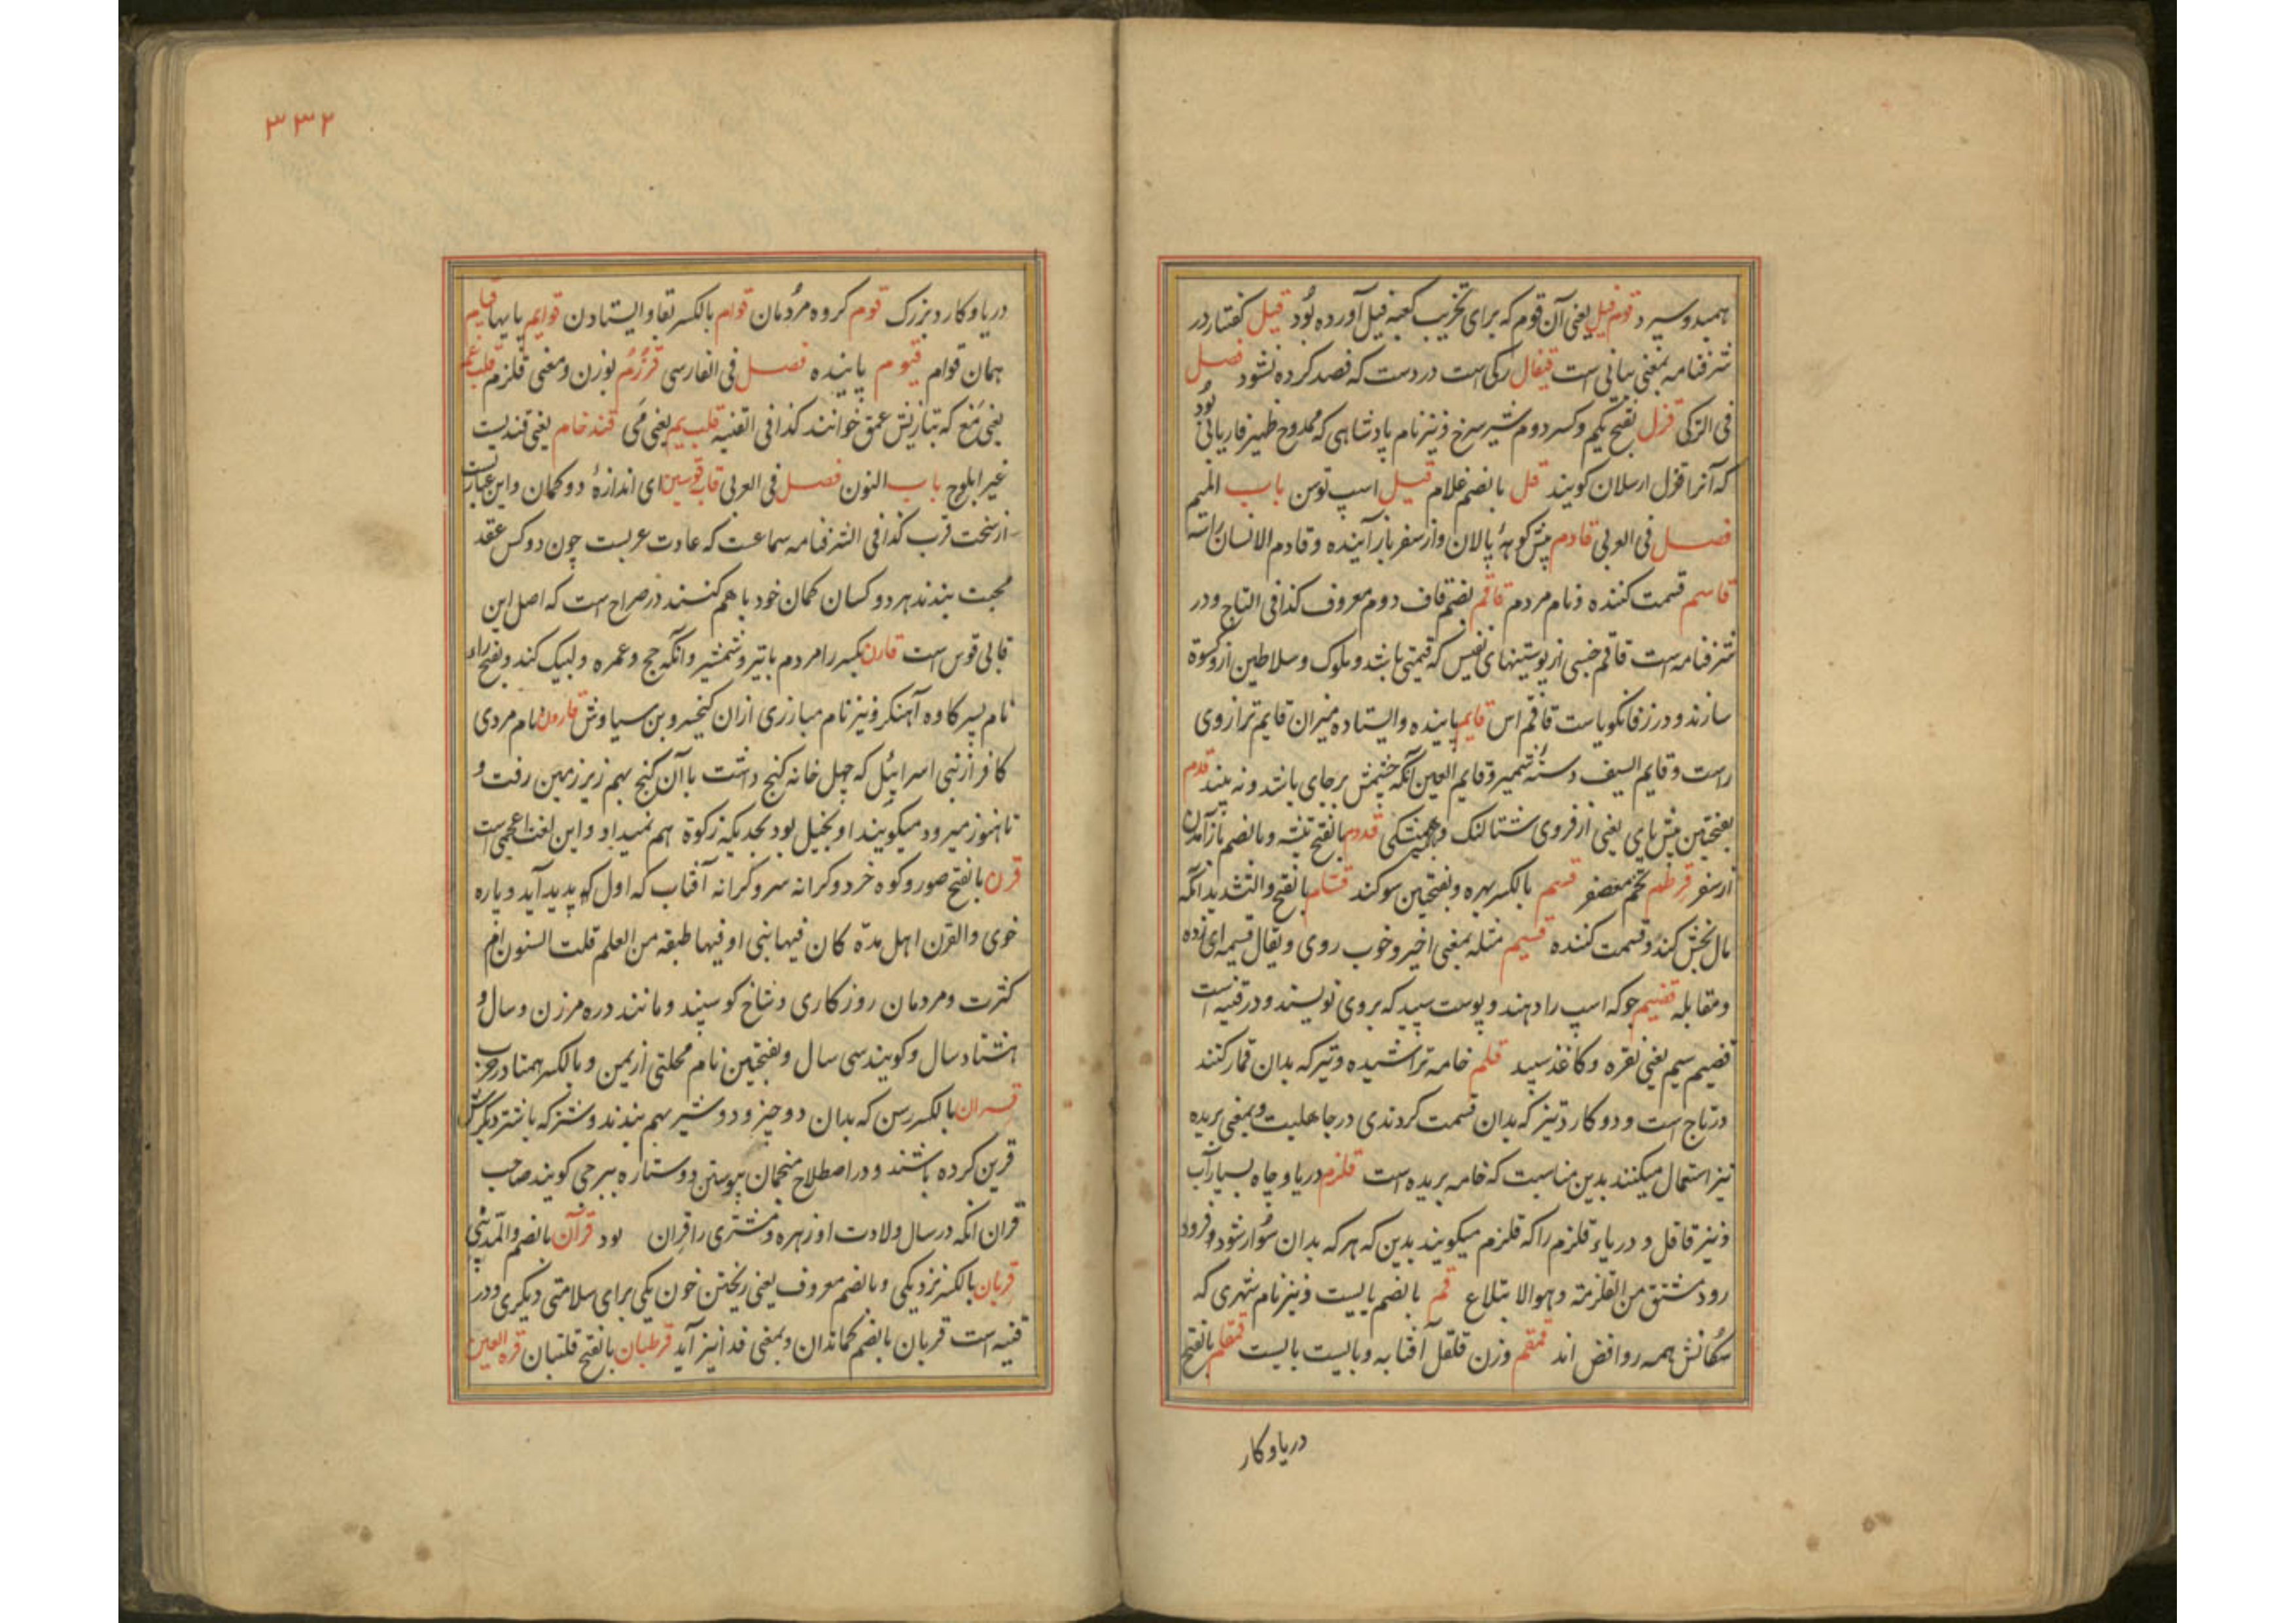 همید و سیرد قوم فیل یعنی آن قوم که برای تخریب کعبه فیل آورده بود قیل گفتار در
شرفنامه بمعنی بیانی است قیفال رگی است در دست که فصد کرده نشود فصل
فی الترکی قزل بفتح یکم و کسر دوم شیر سرخ و نیز نام پادشاهی که ممدوح ظهیر فاریابی بود
که آنرا قزل ارسلان گویند قل بالضم غلام قیل اسپ توسن باب المیم
فصل فی العربی قادم پیش کوههٔ پالان و از سفر باز آینده و قادم الانسان راسه
قاسم قسمت کننده و نام مردم قاقم بضم قاف دوم معروف کذا فی التاج و در
شرفنامه است قاقم جنسی از پوستینهای نفیس که قیمتی باشد و ملوک و سلاطین ازو کسوة
سازند و در زفانگویاست قاقم اس قایم پاینده و ایستاده میزان قایم ترازوی
راست و قایم السیف دستهٔ شمیر و قایم العین آنکه چشمش برجای باشد و نه بیند قدم
بفتحتین پیش پای یعنی از فروی شتالنگ و قدوم بالفتح تیشه و بالضم باز آمدن
از سفر قرطم تخم معصفر قسم بالکسر بهره و بفتحتین سوکند قسام بالفتح والتشدید آنکه
مال بخش کند و قسمت کننده قسیم مثله بمعنی اخیر و خوب روی و یقال قسیمه ای
و مقابله قضیم جو که اسپ را دهند و پوست سپید که بروی نویسند و در قنیه است
قضیم سیم یعنی نقره و کاغذ سپید قلم خامه تراشیده و تیر که بدان قمار کنند
در تاج است و دو کارد تیز که بدان قسمت کردندی در جاهلیت و بمعنی بریده
نیز استعمال میکنند بدین مناسبت که خامه بریده است قلزم دریا و چاه بسیار آب
و نیز قاقل و دریاء قلزم را که قلزم میگویند بدین که هر که بدان سوار شود فرود
رود مشتق من القلزمة و هو الابتلاع قم بالضم بایست و نیز نام شهری که
سکانش همه روافض اند قمقم وزن قلقل آفتابه و بایست بایست قمقام بالفتح
دریا و کار
۳۳۲
دریا و کارد بزرک قوم کروه مردمان قوام بالکسر بقا و ایستادن قوایم پایها قیام
همان قوام قیوم پاینده فصل فی الفارسی قرزم بوزن و معنی قلزم قلب
یعنی مغ که بتازیش عمق خوانند کذا فی القنیه قلب یم یعنی می قند خام یعنی قندیست
غیر ابلوج باب النون فصل فی العربی قاب قوسین ای اندازهٔ دو کمان و این عبارتست
از سخت قرب کذا فی الشرفنامه سماعست که عادت عربست چون دو کس عقد
محبت بندند هر دو کسان کمان خود باهم کنند در صراح است که اصل این
قابی قوس است قارن بکسر را مردم با تیر و شمشیر و آنکه حج و عمره و لبیک کند و بفتح راء
نام پسر کاوه آهنکر و نیز نام مبارزی ازان کیخسرو بن سیاوش قارون نام مردی
کافر از بنی اسرائیل که چهل خانه کنج داشت با آن کنج بهم زیر زمین رفت و
تا هنوز میرود میگویند او بخیل بود بحدیکه زکوة هم نمیداد و این لغت اعجمی است
قرن بالفتح صور و کوه خرد و کرانه سر و کرانه آفتاب که اول پدید آید و پاره
خوی و القرن اهل مدة کان فیها نبی او فیها طبقه من العلم قلت السنون ام
کثرت و مردمان روزکاری و شاخ کوسپند و مانند دره مر زن و سال و
هشتاد سال و کویند سی سال و بفتحتین نام محلتی از یمن و بالکسر همتا در حرب
قران بالکسر رسن که بدان دو چیز و دو شیر بهم بندند و شتر که با شتر دیکرش
قرین کرده باشند و در اصطلاح منجمان پیوستن دو ستاره ببرجی کویند صاحب
قران آنکه در سال ولادت او زهره و مشتری را قران بود قرآن بالضم والمد نبی
قربان بالکسر نزدیکی و بالضم معروف یعنی ریختن خون یکی برای سلامتی دیکری و در
قنیه است قربان بالضم کماندان و بمعنی فدا نیز آید قرطبان بالفتح قلتبان قرة العین